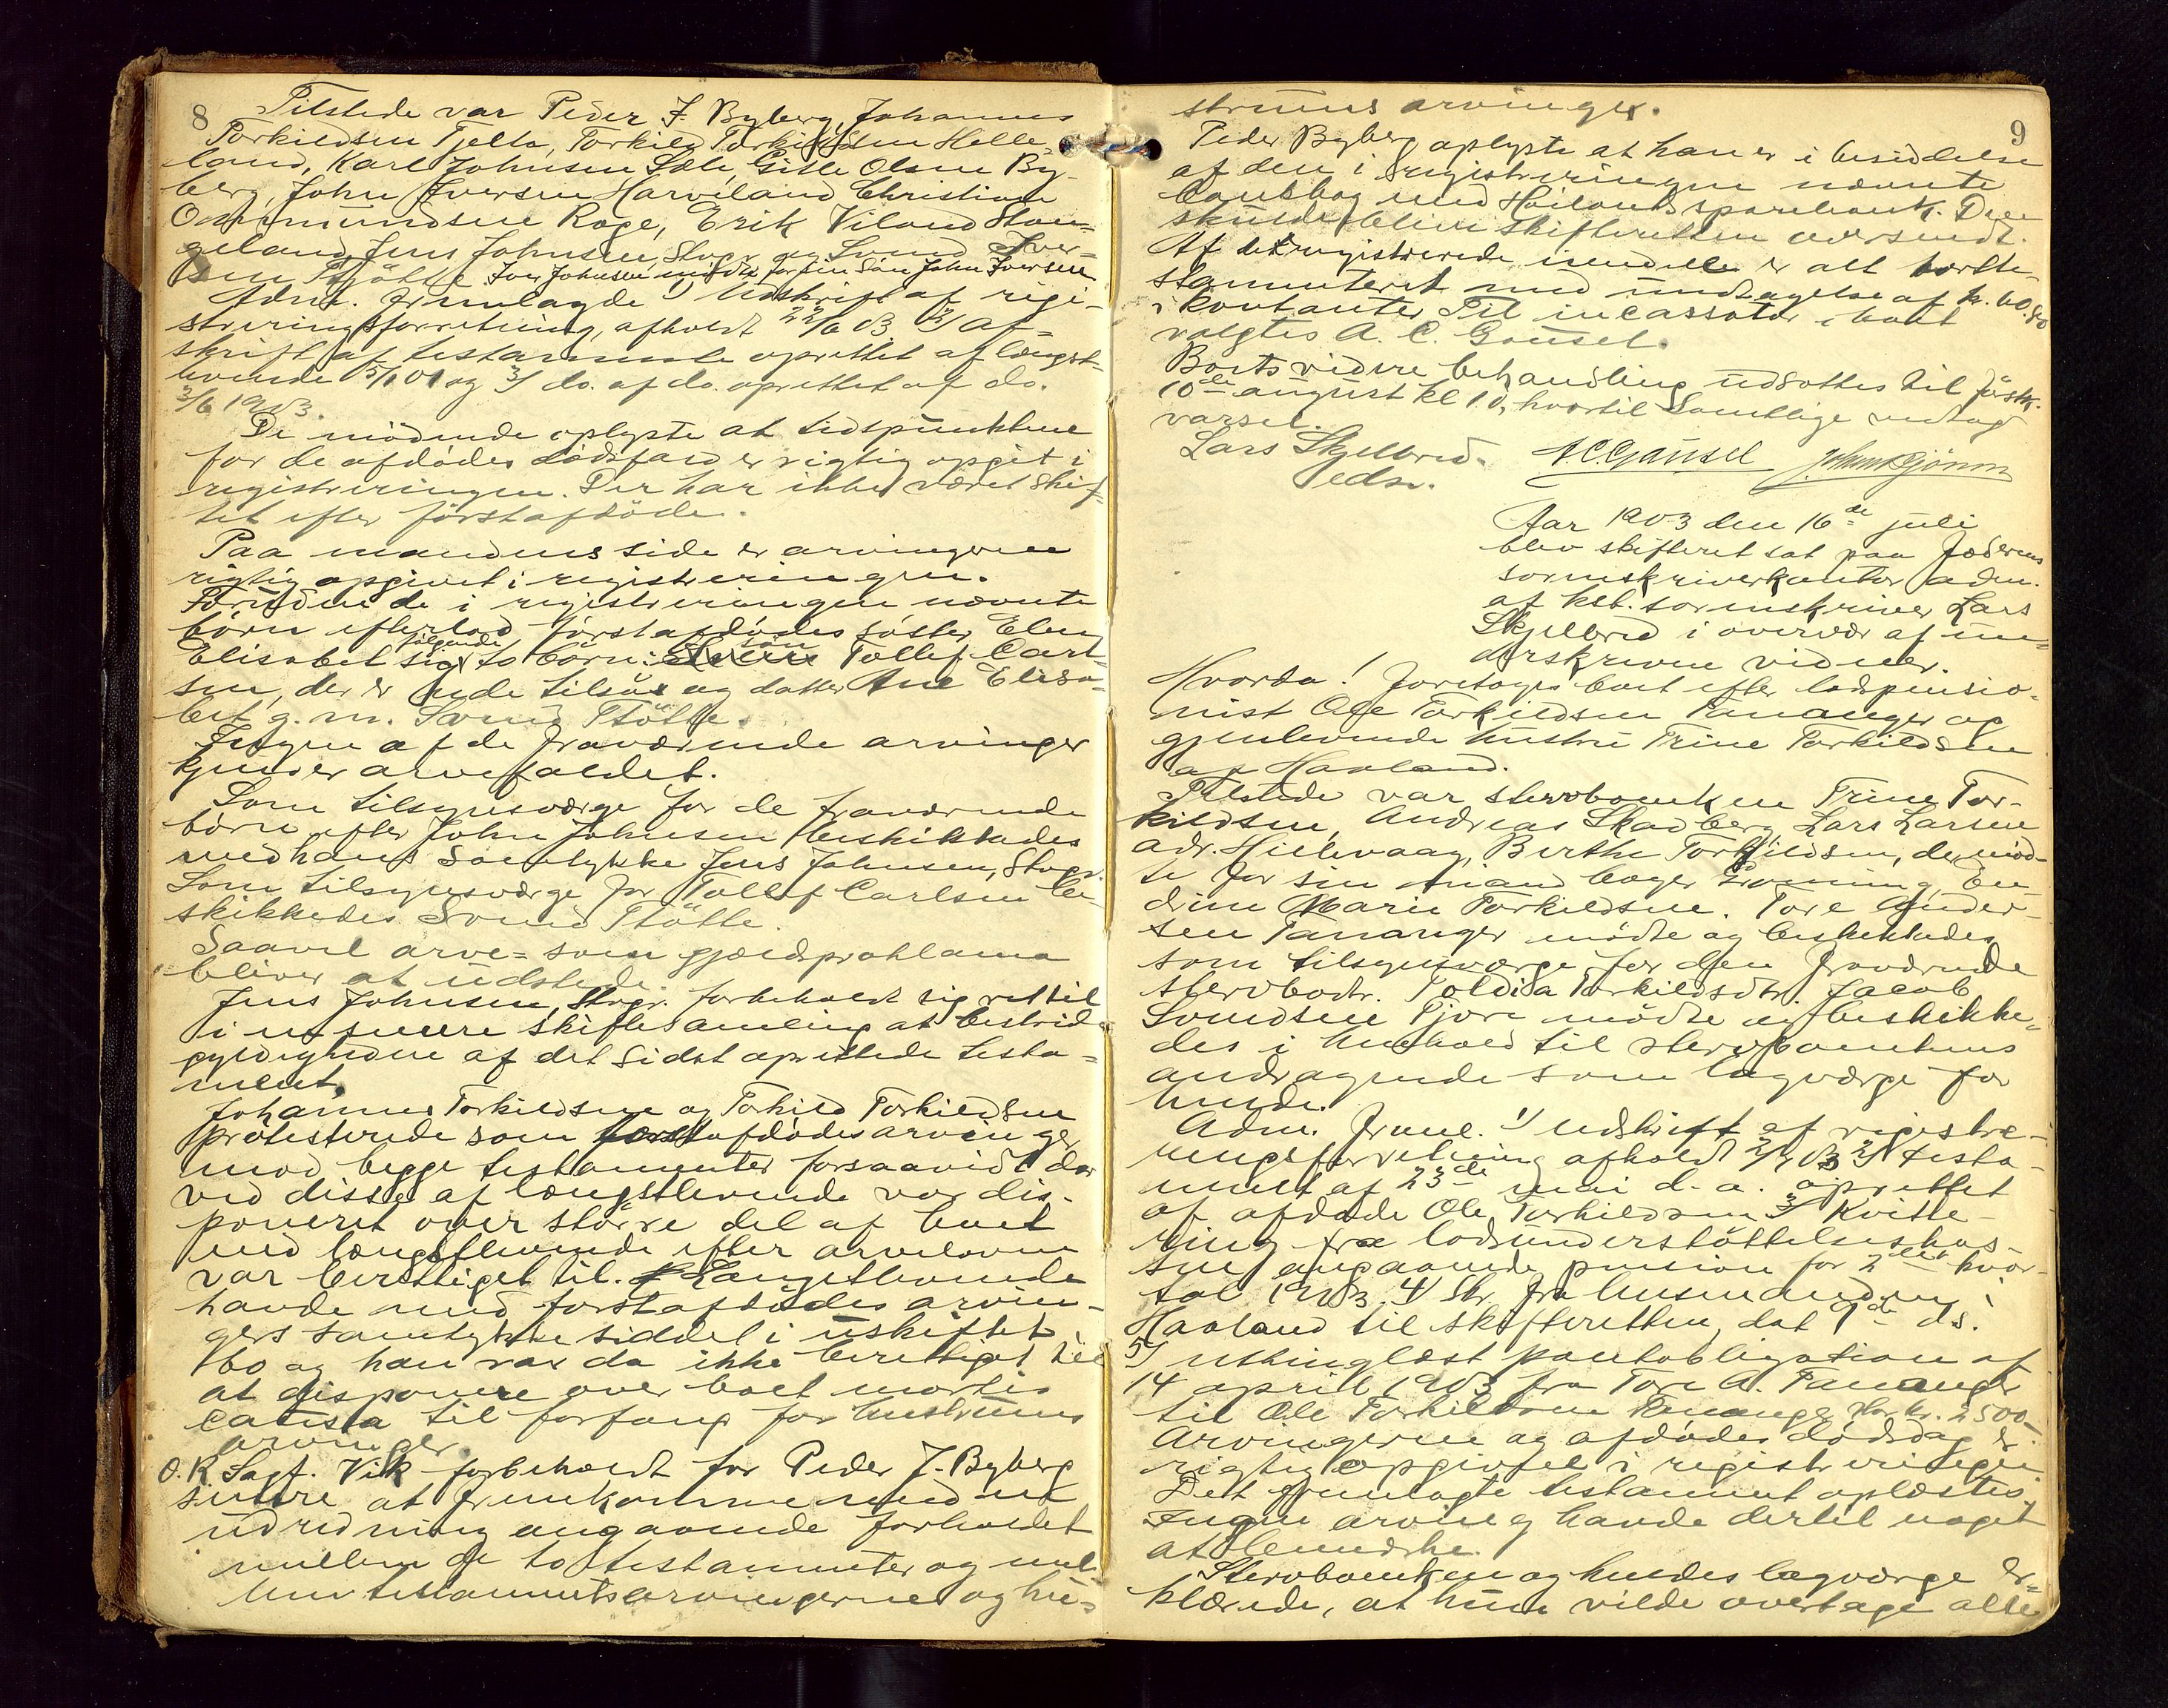 8
Tilstede var Peder J. Byberg, Johannes
Torkildsen Tjelta, Torkild Torkildsen Helle-
land, Karl Johnsen Sole, Gitle Olsen By-
berg, John Iversen Harviland, Christian
Osmundsen Rage, Erik Viland Stan-
geland, Jens Johnsen, Stvgr. og Svend Iver-
sen Tjötte. Iver Johnsen mödte for sin Sön John Iversen
Adm. fremlagde 1/ Udskrift af regi-
streringsforretning, afholdt 22/6 03 2/ Af-
skrift af testamente oprettet af længst-
levende 5/1 01 og 3/ do. af do. oprettet af do.
3/6 1903.
De mödende oplyste at tidspunktene
for de afdödes dödsfald er rigtig opgit i
registreringen. Der har ikke været skif-
tet efter förstafdöde.
Paa mandens side er arvingerne
rigtig opgivet i registreringen.
Foruden de i registreringen nævnte
börn efterlod förstafdödes söster Elen
Elisabet sig følgende to börn: sön Tollef Carl-
sen, der er ude tilsös og datter Ane Elisa-
bet g. m. Svend Tjötte.
Ingen af de fraværende arvinger
kjender arvefaldet.
Som tilsynsværge for de fraværende
börn efter John Johnsen beskikkedes
med hans Samtykke Jens Johnsen, Stvgr.
Som tilsynsværge for Tollef Carlsen be-
skikkedes Svend Tjötte.
Saavel arve- som gjældsproklama
bliver at udstede.
Jens Johnsen, Stvgr. forbeholdt sig ret til
i en senere skiftesamling at bestride
gyldigheden af det sidst oprettede testa-
ment.
Johannes Torkildsen og Torkild Torkildsen
protesterede som førstafdødes arvinger
mod begge testamenter forsaavidt der
ved disse af længstlevende var dis-
poneret over större del af boet
end længstlevende efter arveloven
var berettiget til. Længstlevende
havde med förstafdödes arvin-
gers samtykke siddet i uskiftet
bo og han var da ikke berettiget til
at disponere over boet mortis
causa til forfang for hustruens
arvinger.
O.R.Sagf. Vik forbeholdt for Peder J. Byberg
senere at fremkomme med en
udredning angaaende forholdet
mellem de to testamenter og mel-
lem testamentsarvingerne og hu-
9
struens arvinger.
Peder Byberg oplyste at han er i besiddelse
af den i registreringen nævnte
bankbog med Höilands sparebank. Den
skulde bliver skifteretten oversendt.
Af det registrerede inndele er alt bortte-
stamenteret med undtagelse af kr. 60.80
i kontanter. Til incassator i boet
valgtes A. C. Gausel.
Boets videre behandling udsattes til förstk.
10de august kl 10, hvortil Samtlige vedtog
varsel.
Lars Skjelbred. A. C. Gausel
edsv.
Aar 1903 den 16de juli
blev skifteret sat paa Jæderens
sorenskriverkontor adm.
af kst. sorenskriver Lars
Skjelbred i overvær af un-
derskrevne vidner.
Hvorda! Foretoges boet efter lodspensio-
nist Ole Torkildsen Tananger og
gjenlevende hustru Trine Torkildsen
af Havland.
Tilstede var stervboenken Trine Tor-
kildsen, Andreas Skadberg, Lars Larsen
adr. Hillevaag, Berthe Torkildsen, der mød-
te for sin mand bager Grönning, En-
drine Marie Torkildsen. Tore Ander-
sen Tananger mödte og beskikkedes
som tilsynsværge for den fraværende
stervbodtr. Toldia Torkildsdtr. Jacob
Svendsen Tjore mödte og beskikke-
des i henhold til stervboenkens
andragende som lagværge for
hende.
Adm. freml. 1/ Udskrift af registre-
ringsforretning afholdt 2/7 03 2/ testa-
ment af 23de mai d. a. oprettet
af afdøde Ole Torkildsen 3/ Kvitte-
ring fra lodsunderstöttelseskas-
sen angaaende pension for 2det kvar-
tal 1903 4/ Skr. fra lensmanden i
Havland til skifteretten, dat 9de ds.
5/ utinglæst pantobligation af
14 april 1903 fra Tore A. Tananger
til Ole Torkildsen Tananger stor kr. 2500.
Arvingerne og afdødes dødsdag er
rigtig opgivet i registreringen.
Det fremlagte testament oplæstes.
Ingen arving havde dertil noget
at bemærke.
Stervboenken og hendes lagværge er-
klærede, at hun vilde overtage alle